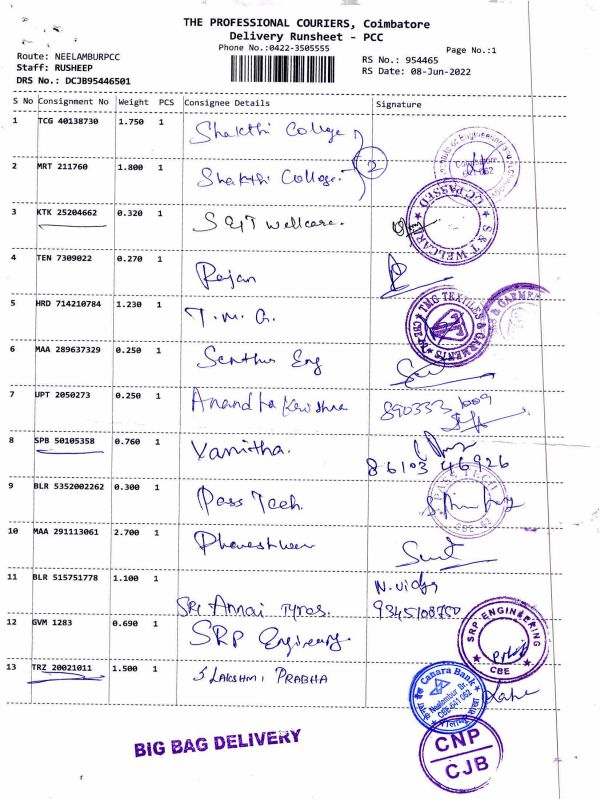 THE PROFESSIONAL COURIERS, Coimbatore
Delivery Runsheet - PCC
Phone No.:0422-3505555
Page No.:1
Route: NEELAMBURPCC
Staff: RUSHEEP
DRS No.: DCJB95446501
RS No.: 954465
RS Date: 08-Jun-2022
S No Consignment No Weight PCS Consignee Details Signature
1 TCG 40138730 1.750 1 Shakthi College
2 MRT 211760 1.800 1 Shakthi College 2
3 KTK 25204662 0.320 1 S &T Wellcare.
S & T WELCARE
4 TEN 7309022 0.270 1 Rajan
5 HRD 714210784 1.230 1 T.M.G.
TMG TEXTILES & GARMENTS
6 MAA 289637329 0.250 1 Eng
7 UPT 2050273 0.250 1
8 SPB 50105358 0.760 1 Vanitha.
86103 46926
9 BLR 5352002262 0.300 1 Pass Tech.
10 MAA 291113061 2.700 1
11 BLR 515751778 1.100 1 Sri Annai Tyres.
N. Vidya
12 GVM 1283 0.690 1 SRP Engineery.
SRP ENGINEERING
CBE
13 TRZ 20021011 1.500 1 S LAKSHMI PRABHA
Canara Bank
Neelambur Br.
CBE-641 062
BIG BAG DELIVERY
CNP
CJB